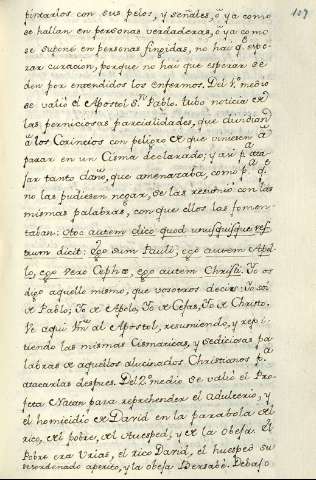 127
pintarlos con sus pelos, y señales, ó ya como
se hallan en personas verdaderas, ó ya como
se supone en personas fingidas, no hai q.e espe-
rar curacion, porque no hai que esperar se
den por entendidos los enfermos. Del 1.o medio
se valió el Apostol S.n Pablo. tubo noticia de
las perniciosas parcialidades, que dividian
a los Corintios con peligro de que viniesen á
parar en un Cisma declarado; y asi p.a ata-
jar tanto daño, que amenazaba, como p.a q.e
no las pudiesen negar, se las resumió con las
mismas palabras, con que ellos las fomen-
taban: Hoc autem dico quod unusquisque ves-
trum dicit: Ego sum Pauli; ego autem Apol-
lo, ego vero Cephæ, ego autem Christi. Yo os
digo aquello mismo, que vosotros decis: Yo soi
de Pablo; Yo de Apolo, Yo de Cefas, Yo de Christo.
Ve aqui Vm. al Apostol, resumiendo, y repi-
tiendo las mismas Cismaticas, y sediciosas pa-
labras de aquellos alucinados Christianos p.a
atacarlas despues. Del 2.o medio se valió el Pro-
feta Natan para reprehender el adulterio, y
el homicidio de David en la parabola del
rico, del pobre, del Huesped, y de la obeja. El
Pobre era Urias, el rico David, el huesped su
desordenado apetito, y la obeja Bersabé. Debajo